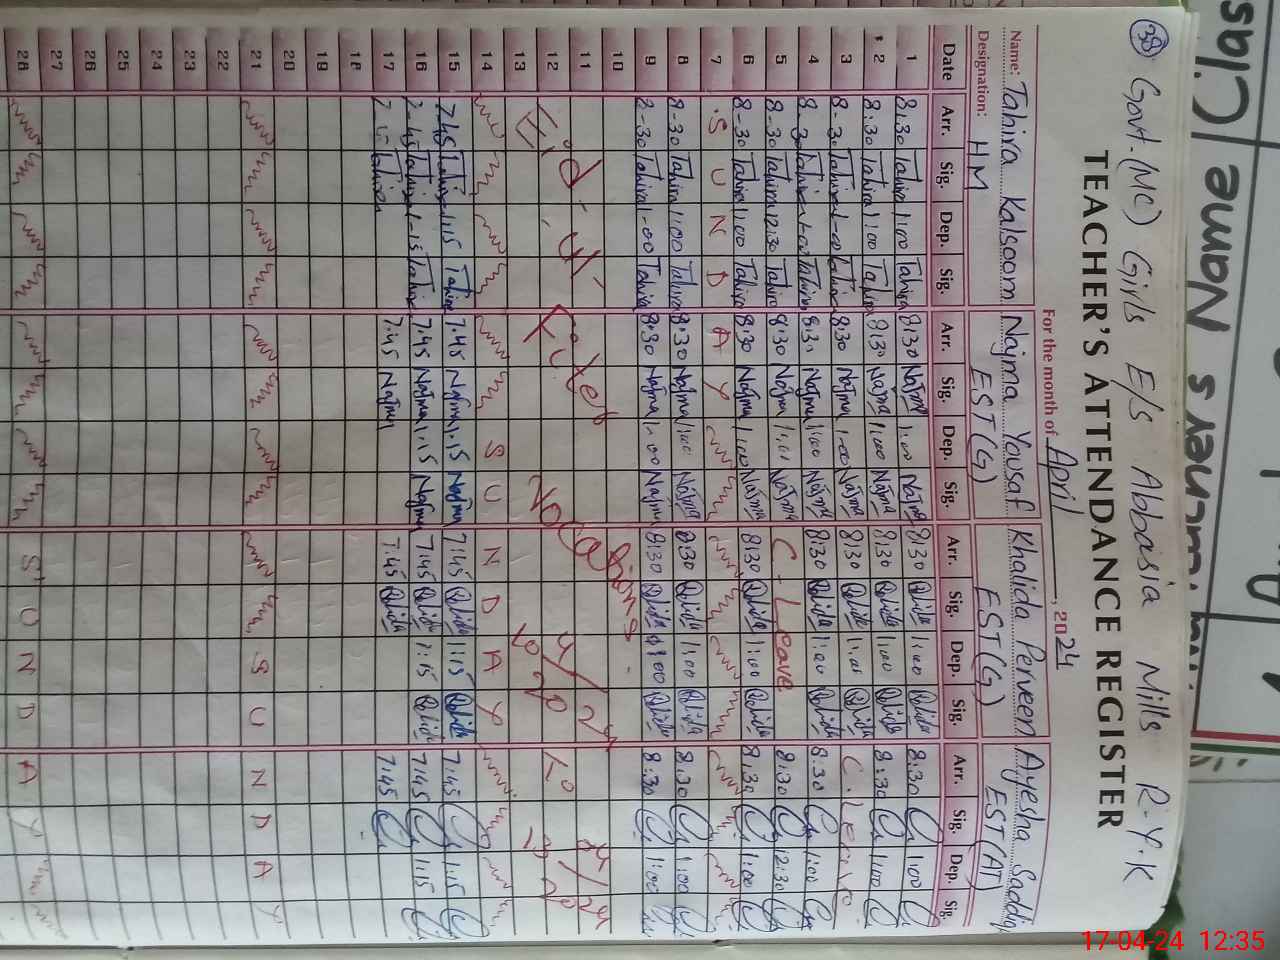 38 Govt. (MC) Girls E/S Abbasia Mills R.Y.K
TEACHER'S ATTENDANCE REGISTER
For the month of April, 2024
Name: Tahira Kalsoom Najma Yousaf Khalida Perveen Ayesha Saddiq
Designation: HM EST(G) EST(G) EST(AT)
Date Arr. Sig. Dep. Sig. Arr. Sig. Dep. Sig. Arr. Sig. Dep. Sig. Arr. Sig. Dep. Sig.
1 8:30 Tahira 1:00 Tahira 8:30 Najma 1:00 Najma 8:30 1:00 8:30 1:00
2 8:30 Tahira 1:00 Tahira 8:30 Najma 1:00 Najma 8:30 1:00 8:30 1:00
3 8-30 Tahira 1-00 Tahira 8:30 Najma 1:00 Najma 8:30 1:00 C. Leave
4 8-30 Tahira 1-00 Tahira 8:30 Najma 1:00 Najma 8:30 1:00 8:30 1:00
5 8-30 Tahira 12:30 Tahira 8:30 Najma Najma C-Leave 8:30 12:30
6 8-30 Tahira 1:00 Tahira 8:30 Najma 1:00 Najma 8:30 1:00 8:30 1:00
7 S U N D A Y
8 8-30 Tahira 1:00 Tahira 8:30 Najma 1:00 Najma 8:30 1:00 8:30 1:00
9 8-30 Tahira 1-00 Tahira 8:30 Najma 1:00 Najma 8:30 1:00 8:30 1:00
10
11
12
13
Eid-ul-Fiter Vocations
14 S U N D A Y
15 7:45 Tahira 1:15 Tahira 7:45 Najma 1:15 Najma 7:45 1:15 7:45 1:15
16 7-45 Tahira 1-15 Tahira 7:45 Najma 1:15 Najma 7:45 1:15 7:45 1:15
17 7-45 Tahira 7:45 Najma 7:45 7:45
18
19
20
21 S U N D A Y
22
23
24
25
26
27
28 S U N D A Y
Class
Name
17-04-24 12:35